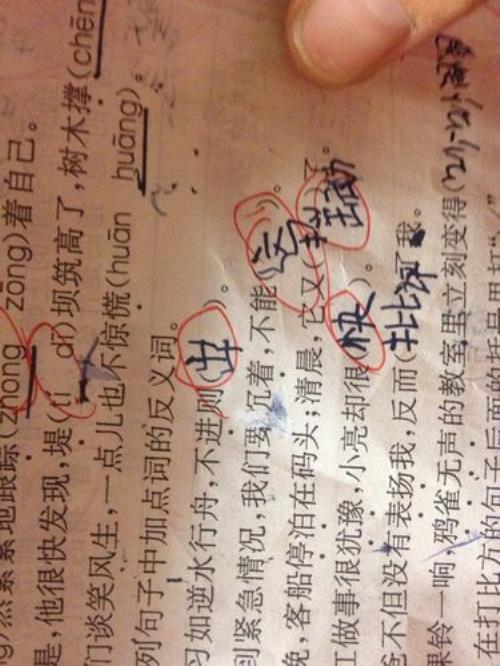 然紧紧地跟踪(zhong zōng)着自己。
是,他很快发现,堤(tí dī)坝筑高了,树木撑(chēn
们谈笑风生,一点儿也不惊慌(huān huāng)。
列句子中加点词的反义词。
习如逆水行舟,不进则(出)。
到紧急情况,我们要沉着,不能()。
晚,客船停泊在码头;清晨,它又()了。
工做事很犹豫,小亮却很(快)。
爸不但没有表扬我,反而(批评)了我。
铃一响,鸦雀无声的教室里立刻变得(
在打比方的句子后面的括号里打"